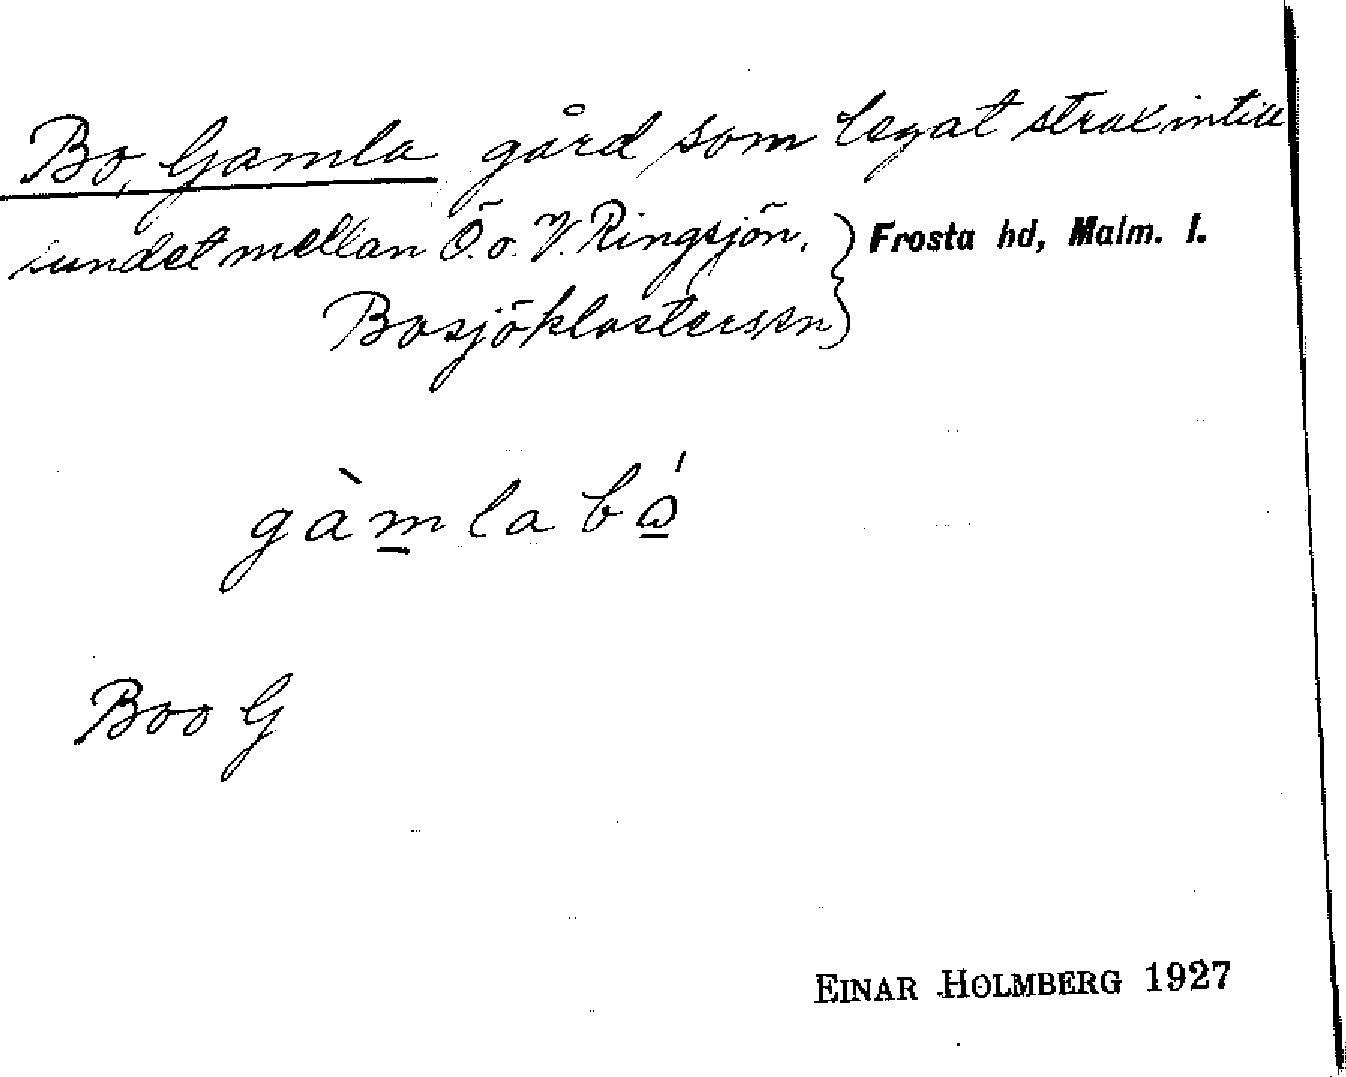 Bo, Gamla gård som legat strax intill
sundet mellan Ö. o. V. Ringsjön, } Frosta hd, Malm. l.
Bosjöklosters sn
gàmla bó
Boo G
EINAR HOLMBERG 1927